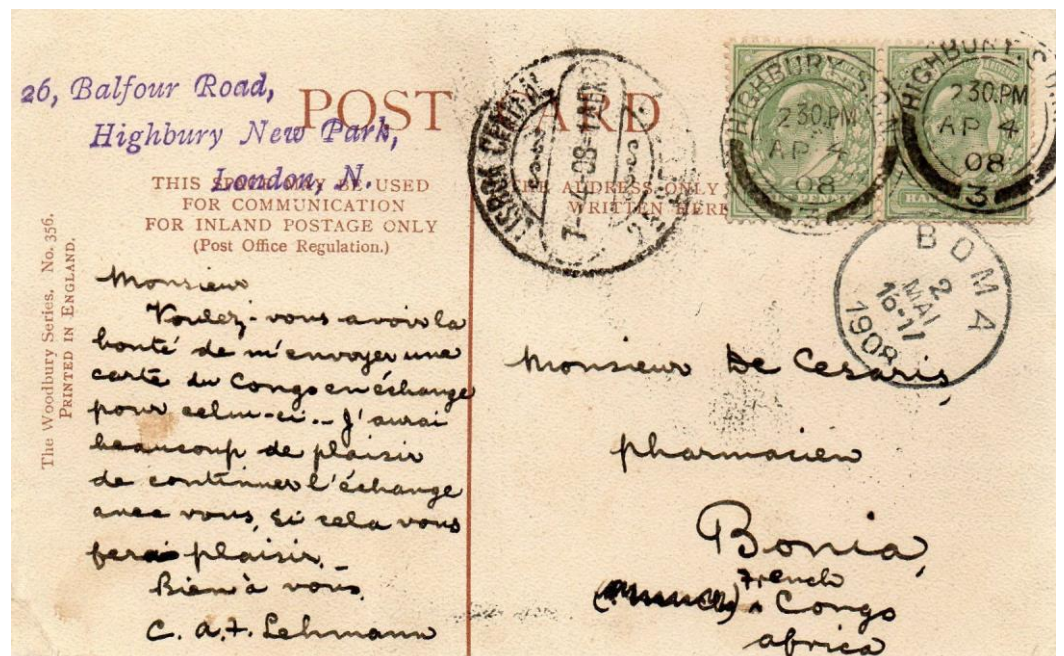 26, Balfour Road,
Highbury New Park,
London, N.
POST CARD
THIS SPACE MAY BE USED
FOR COMMUNICATION
FOR INLAND POSTAGE ONLY
(Post Office Regulation.)
THE ADDRESS ONLY
WRITTEN HERE
The Woodbury Series. No. 356.
PRINTED IN ENGLAND.
LISBOA CENTRAL
7-4-08-1
HIGHBURY
2 30.PM
AP 4
08
3
HIGHBURY
2 30.PM
AP 4
08
3
BOMA
2
MAI
16-17
1908
Monsieur
Voulez-vous avoir la
bonté de m'envoyer une
carte du Congo en échange
pour celui-ci.. J'aurai
beaucoup de plaisir
de continuer l'échange
avec vous, si cela vous
fera plaisir.
Bien à vous,
C. A. F. Lehmann
Monsieur De Cesaris,
pharmacien
Bonia,
French
Congo
africa